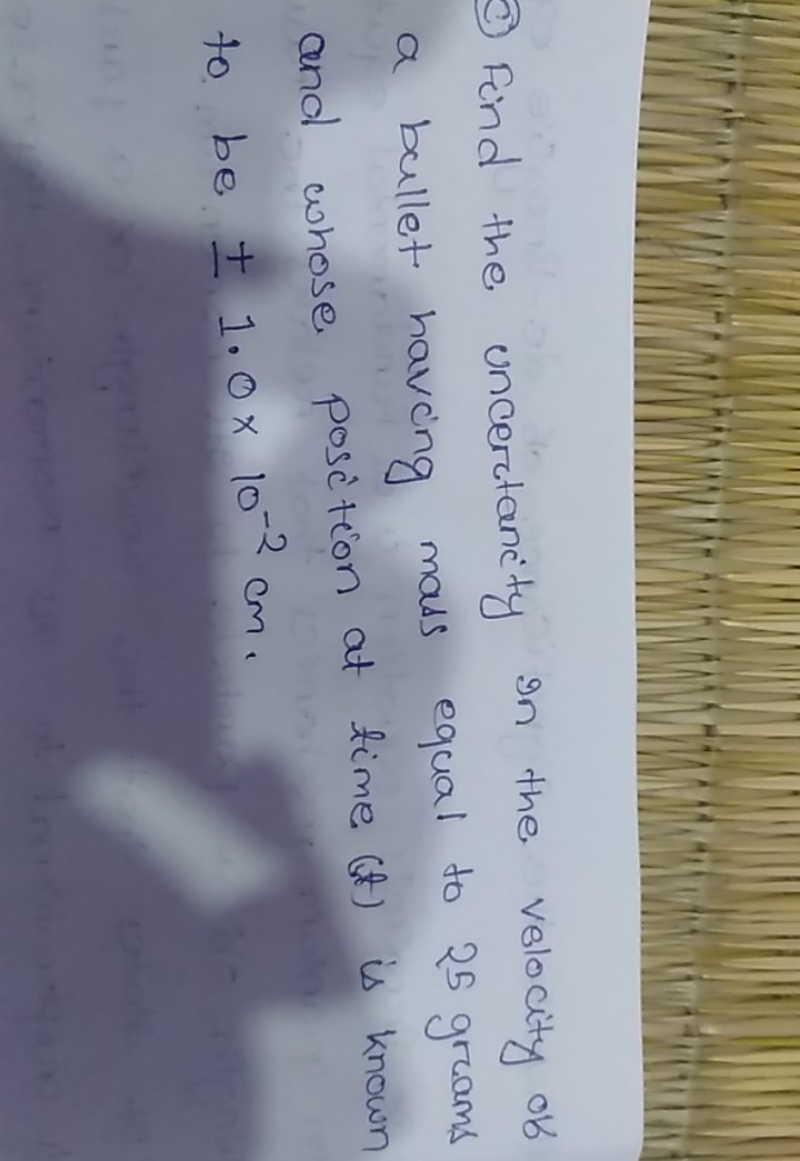 © Find the uncerctancity In the velocity of
a bullet having mass equal to 25 grcams
and whose position at time (t) is known
to be ± 1.0 × 10⁻² cm.